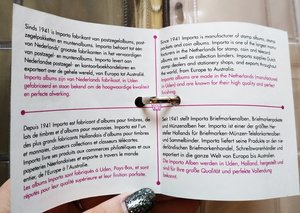 Sinds 1941 is Importa fabrikant van postzegelalbums, post-
zegelpakketten en muntenalbums. Importa behoort tot één
van Nederlands' grootste fabrikanten in het vervaardigen
van postzegel- en muntenalbums. Importa levert aan
Nederlandse postzegel- en kantoorboekhandelaren en
exporteert over de gehele wereld, van Europa tot Australië.
Importa albums zijn van Nederlandse kwaliteit, in Uden
gefabriceerd en staan bekend om de hoogwaardige kwaliteit
en perfecte afwerking.
Since 1941 Importa is manufacturer of stamp albums, stamp
packets and coin albums. Importa is one of the larger manu-
facturers in the Netherlands for stamp, coin and
albums as well as collection binders. Importa supplies Dutch
stamp dealers and stationery shops, and exports throughout
the world, from Europe to Australia.
Importa albums are made in the Netherlands (manufactured
in Uden) and are known for their high quality and perfect
finishing.
Depuis 1941 Importa est fabricant d'albums pour timbres, de
lots de timbres et d'albums pour monnaies. Importa est l'un
des plus grands fabricants Hollandais d'albums pour timbres
et monnaies, classeurs collections et classeurs télécartes.
Importa livre ses produits aux commerces philatéliques et aux
papeteries Néerlandaises et exporte à travers le monde
entier, de l'Europe à l'Australie.
Les albums Importa sont fabriqués à Uden, Pays-Bas, et sont
réputés pour leur qualité supérieure et leur finition parfaite.
Seit 1941 stellt Importa Briefmarkenalben, Briefmarkenpakete
und Münzenalben her. Importa ist einer der großen Her-
steller Hollands für Briefmarken-Alben, Münzen-, Telefonkarten-
und Sammelbinder. Importa liefert seine Produkte an den nie-
derländischen Briefmarkenhandel, Schreibwarenhandel und
exportiert in die ganze Welt von Europa bis Australien.
Die Importa Alben werden in Uden, Holland, hergestellt und
sind für Ihre große Qualität und perfekte Vollendung
bekannt.